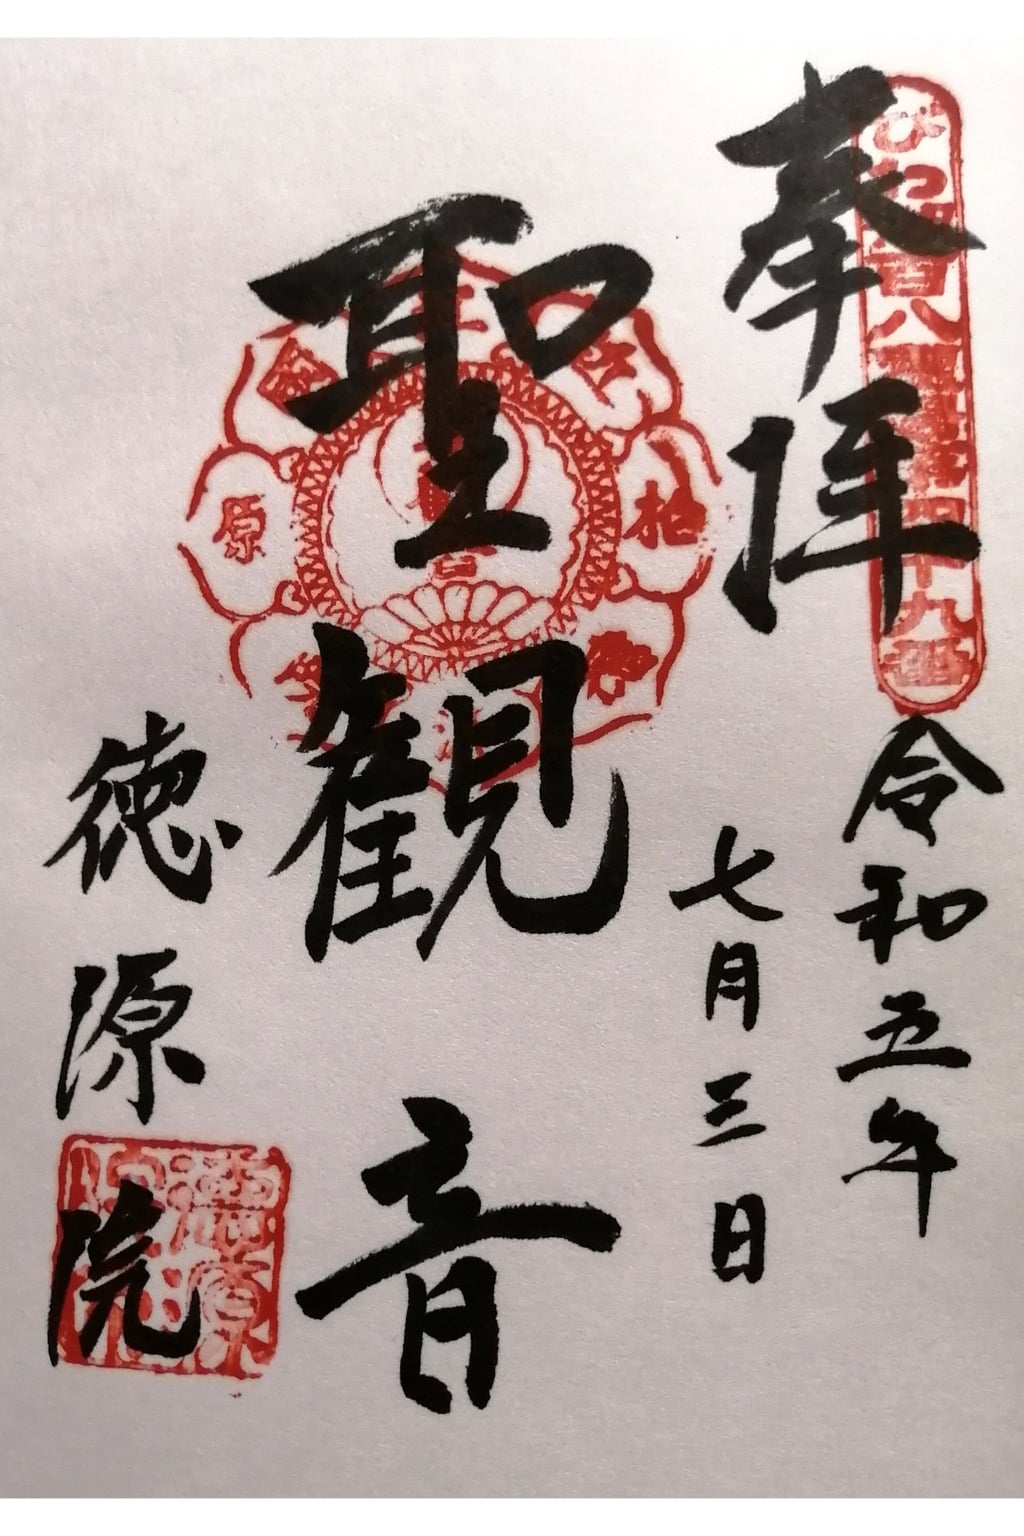 奉拝
びわ湖百八霊場第四十九番
令和五年
七月三日
聖観音
徳源院